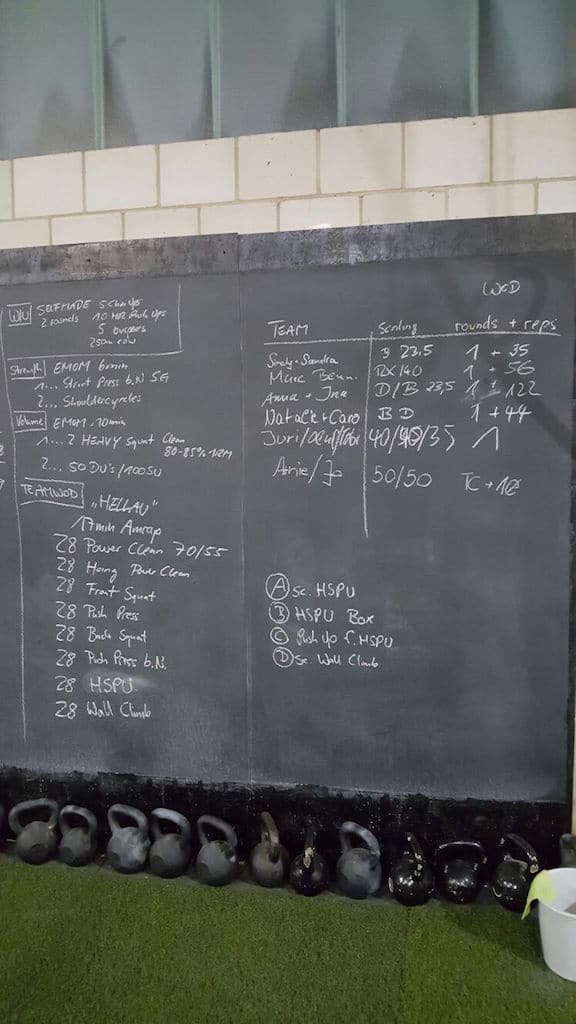 W/U SELFMADE 5 Chin Ups
2 rounds 10 HR Push Ups
5 
250m row
Strength EMOM 6min
1... Strict Press b.N 5
2... Shouldercycles
Volume EMOM 10min
1... 2 HEAVY Squat Clean
80-85% 1RM
2... 50 DU's/100SU
TEAMWOD
„HELLAU"
17min Amrap
28 Power Clean 70/55
28 Hang Power Clean
28 Front Squat
28 Push Press
28 Back Squat
28 Push Press b.N.
28 HSPU
28 Wall Climb
WOD
TEAM Scaling rounds + reps
Sandra B 23,5 1 + 35
Marc RX/40 1 + 56
Anna + D/B 23,5 1 + 122
Natalie + Caro B D 1 + 44
Juri/ 40/40/35 1
Arnie/Jo 50/50 TC +
A Sc. HSPU
B HSPU Box
C Push Up f. HSPU
D Sc. Wall Climb